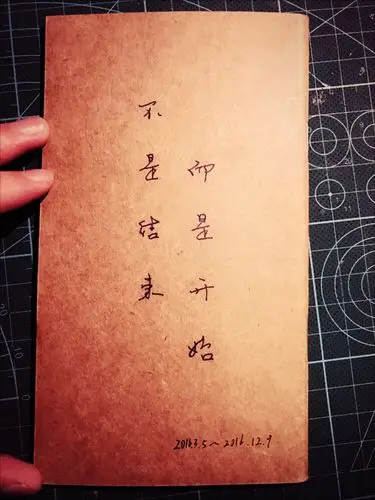 不是结束
而是开始
2016.3.5~2016.12.9